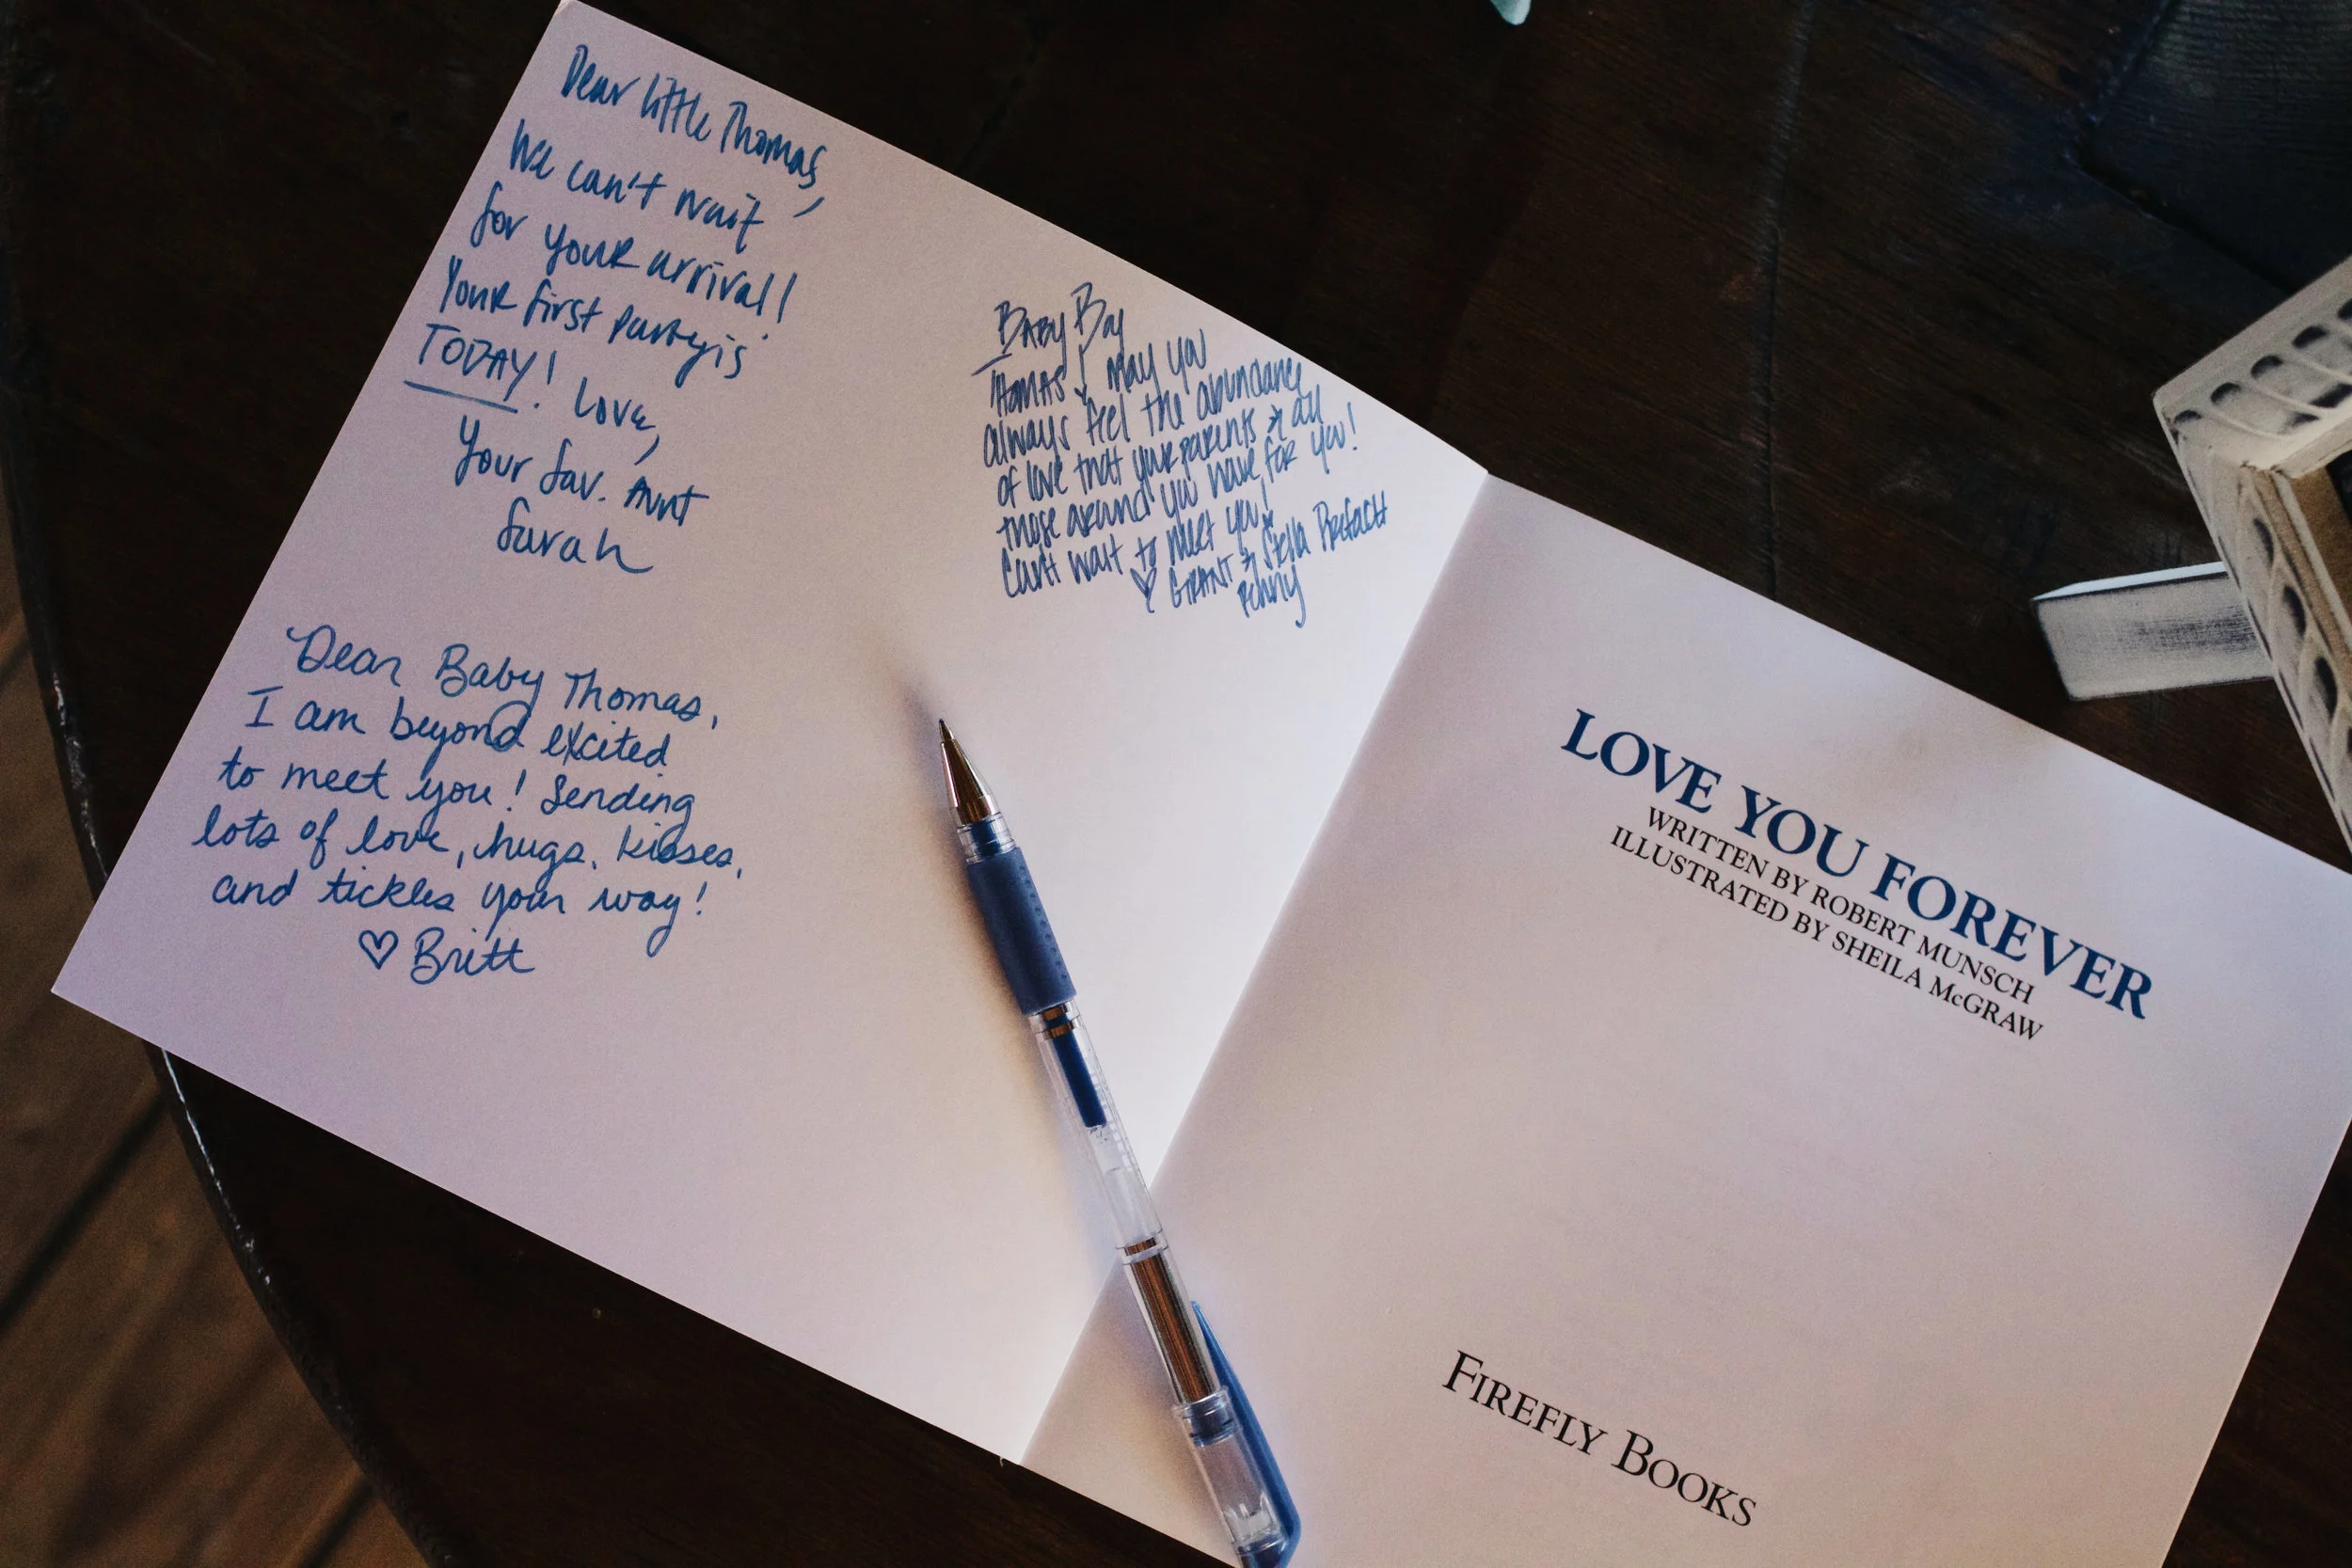 Dear little Thomas,
We can't wait
for your arrival!
Your first party is
TODAY! Love,
Your fav. Aunt
Sarah
Dear Baby Thomas,
I am beyond excited
to meet you! Sending
lots of love, hugs, kisses,
and tickles your way!
♡ Britt
Baby Boy
Thomas! May you
always feel the abundance
of love that your parents & all
those around you have for you!
Can't wait to meet you!
♡ Grant & Stella
Penny
LOVE YOU FOREVER
WRITTEN BY ROBERT MUNSCH
ILLUSTRATED BY SHEILA McGRAW
FIREFLY BOOKS